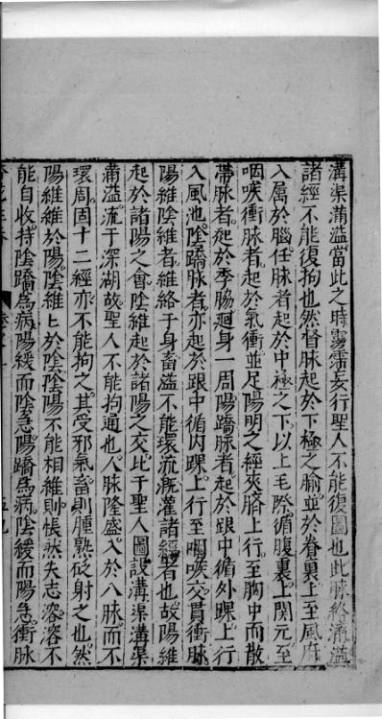 溝渠滿溢當此之時雺霈妄行聖人不能復圖也此脉絡滿溢
諸經不能復拘也然督脉起於下極之腧並於脊裏上至風府
入属於腦任脉者起於中極之下以上毛際循腹裏上関元至
咽喉衝脉者起於氣衝並足陽明之經夾臍上行至胸中而散
帶脉者起於季脇廻身一周陽蹻脉者起於跟中循外踝上行
入風池陰蹻脉者亦起於跟中循内踝上行至咽喉交貫衝脉
陽維陰維者維絡于身畜溢不能環流漑灌諸經者也故陽維
起於諸陽之會陰維起於諸陽之交比于聖人圖設溝渠溝渠
滿溢流于深湖故聖人不能拘通也人脉隆盛入於八脉而不
環周固十二經亦不能拘之其受邪氣畜則腫熱砭射之也然
陽維維於陽陰維匕於陰陰陽不能相維則悵然失志溶溶不
能自收持陰蹻為病陽緩而陰急陽蹻為病陰緩而陽急衝脉